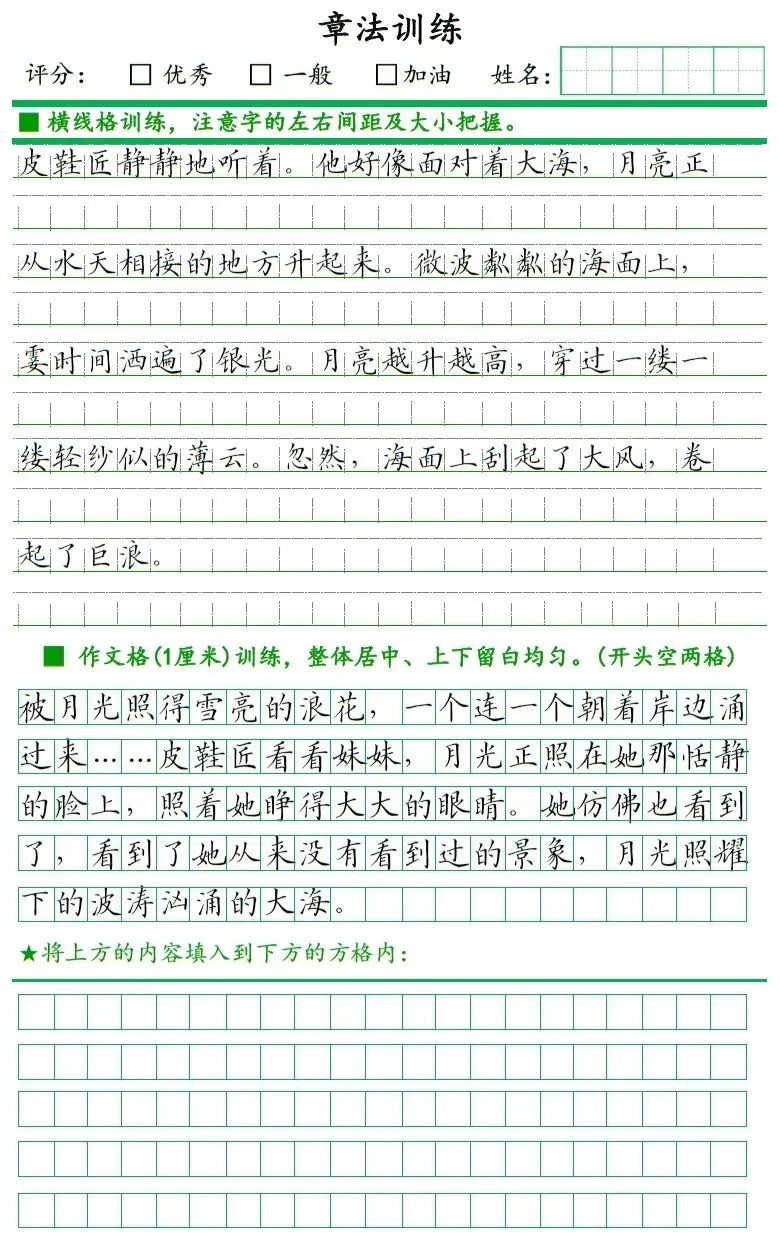 章法训练
评分： □ 优秀 □ 一般 □加油 姓名：
■ 横线格训练，注意字的左右间距及大小把握。
皮鞋匠静静地听着。他好像面对着大海，月亮正
从水天相接的地方升起来。微波粼粼的海面上，
霎时间洒遍了银光。月亮越升越高，穿过一缕一
缕轻纱似的薄云。忽然，海面上刮起了大风，卷
起了巨浪。
■ 作文格(1厘米)训练，整体居中、上下留白均匀。(开头空两格)
被月光照得雪亮的浪花，一个连一个朝着岸边涌
过来……皮鞋匠看看妹妹，月光正照在她那恬静
的脸上，照着她睁得大大的眼睛。她仿佛也看到
了，看到了她从来没有看到过的景象，月光照耀
下的波涛汹涌的大海。
★将上方的内容填入到下方的方格内：